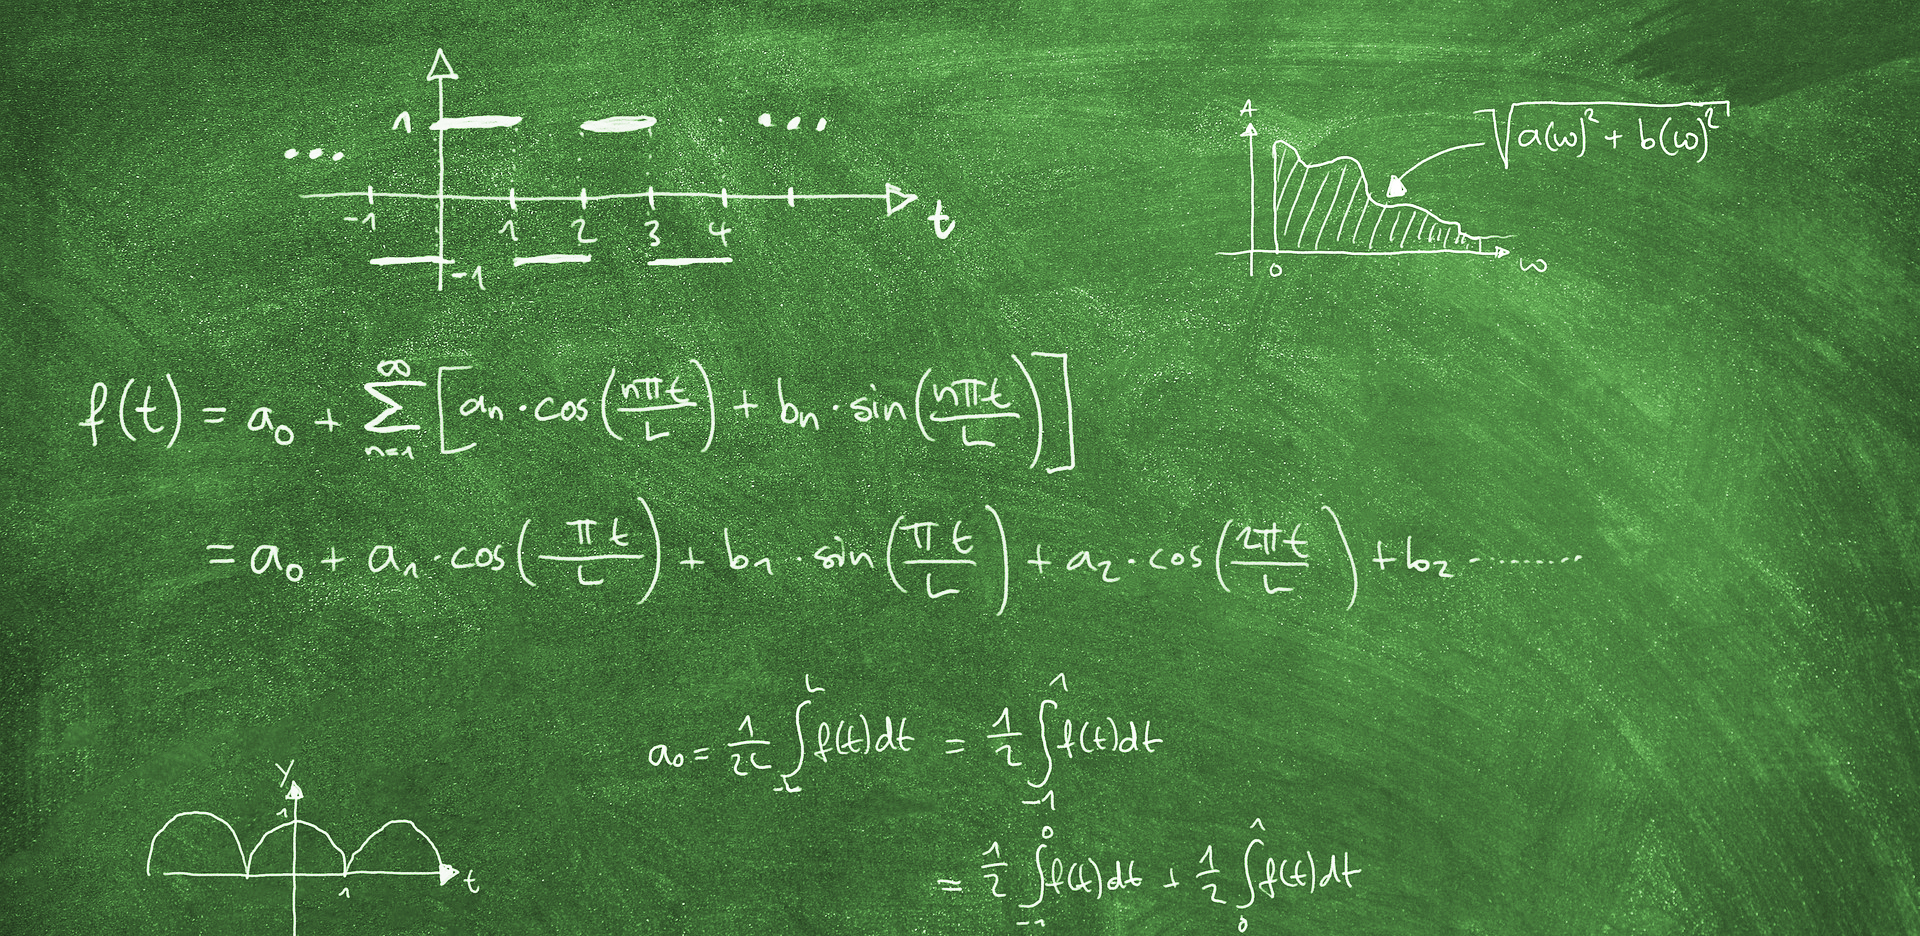 1
-1 1 2 3 4 t
-1
A
√(a(ω)² + b(ω)²)
0 ω
f(t) = a₀ + ∑ₙ₌₁^∞ [aₙ · cos(nπt/L) + bₙ · sin(nπt/L)]
= a₀ + a₁ · cos(πt/L) + b₁ · sin(πt/L) + a₂ · cos(2πt/L) + b₂ ........
a₀ = 1/2L ∫₋L^L f(t)dt = 1/2 ∫₋₁^1 f(t)dt
= 1/2 ∫₋₁^0 f(t)dt + 1/2 ∫₀^1 f(t)dt
y
1
1 t